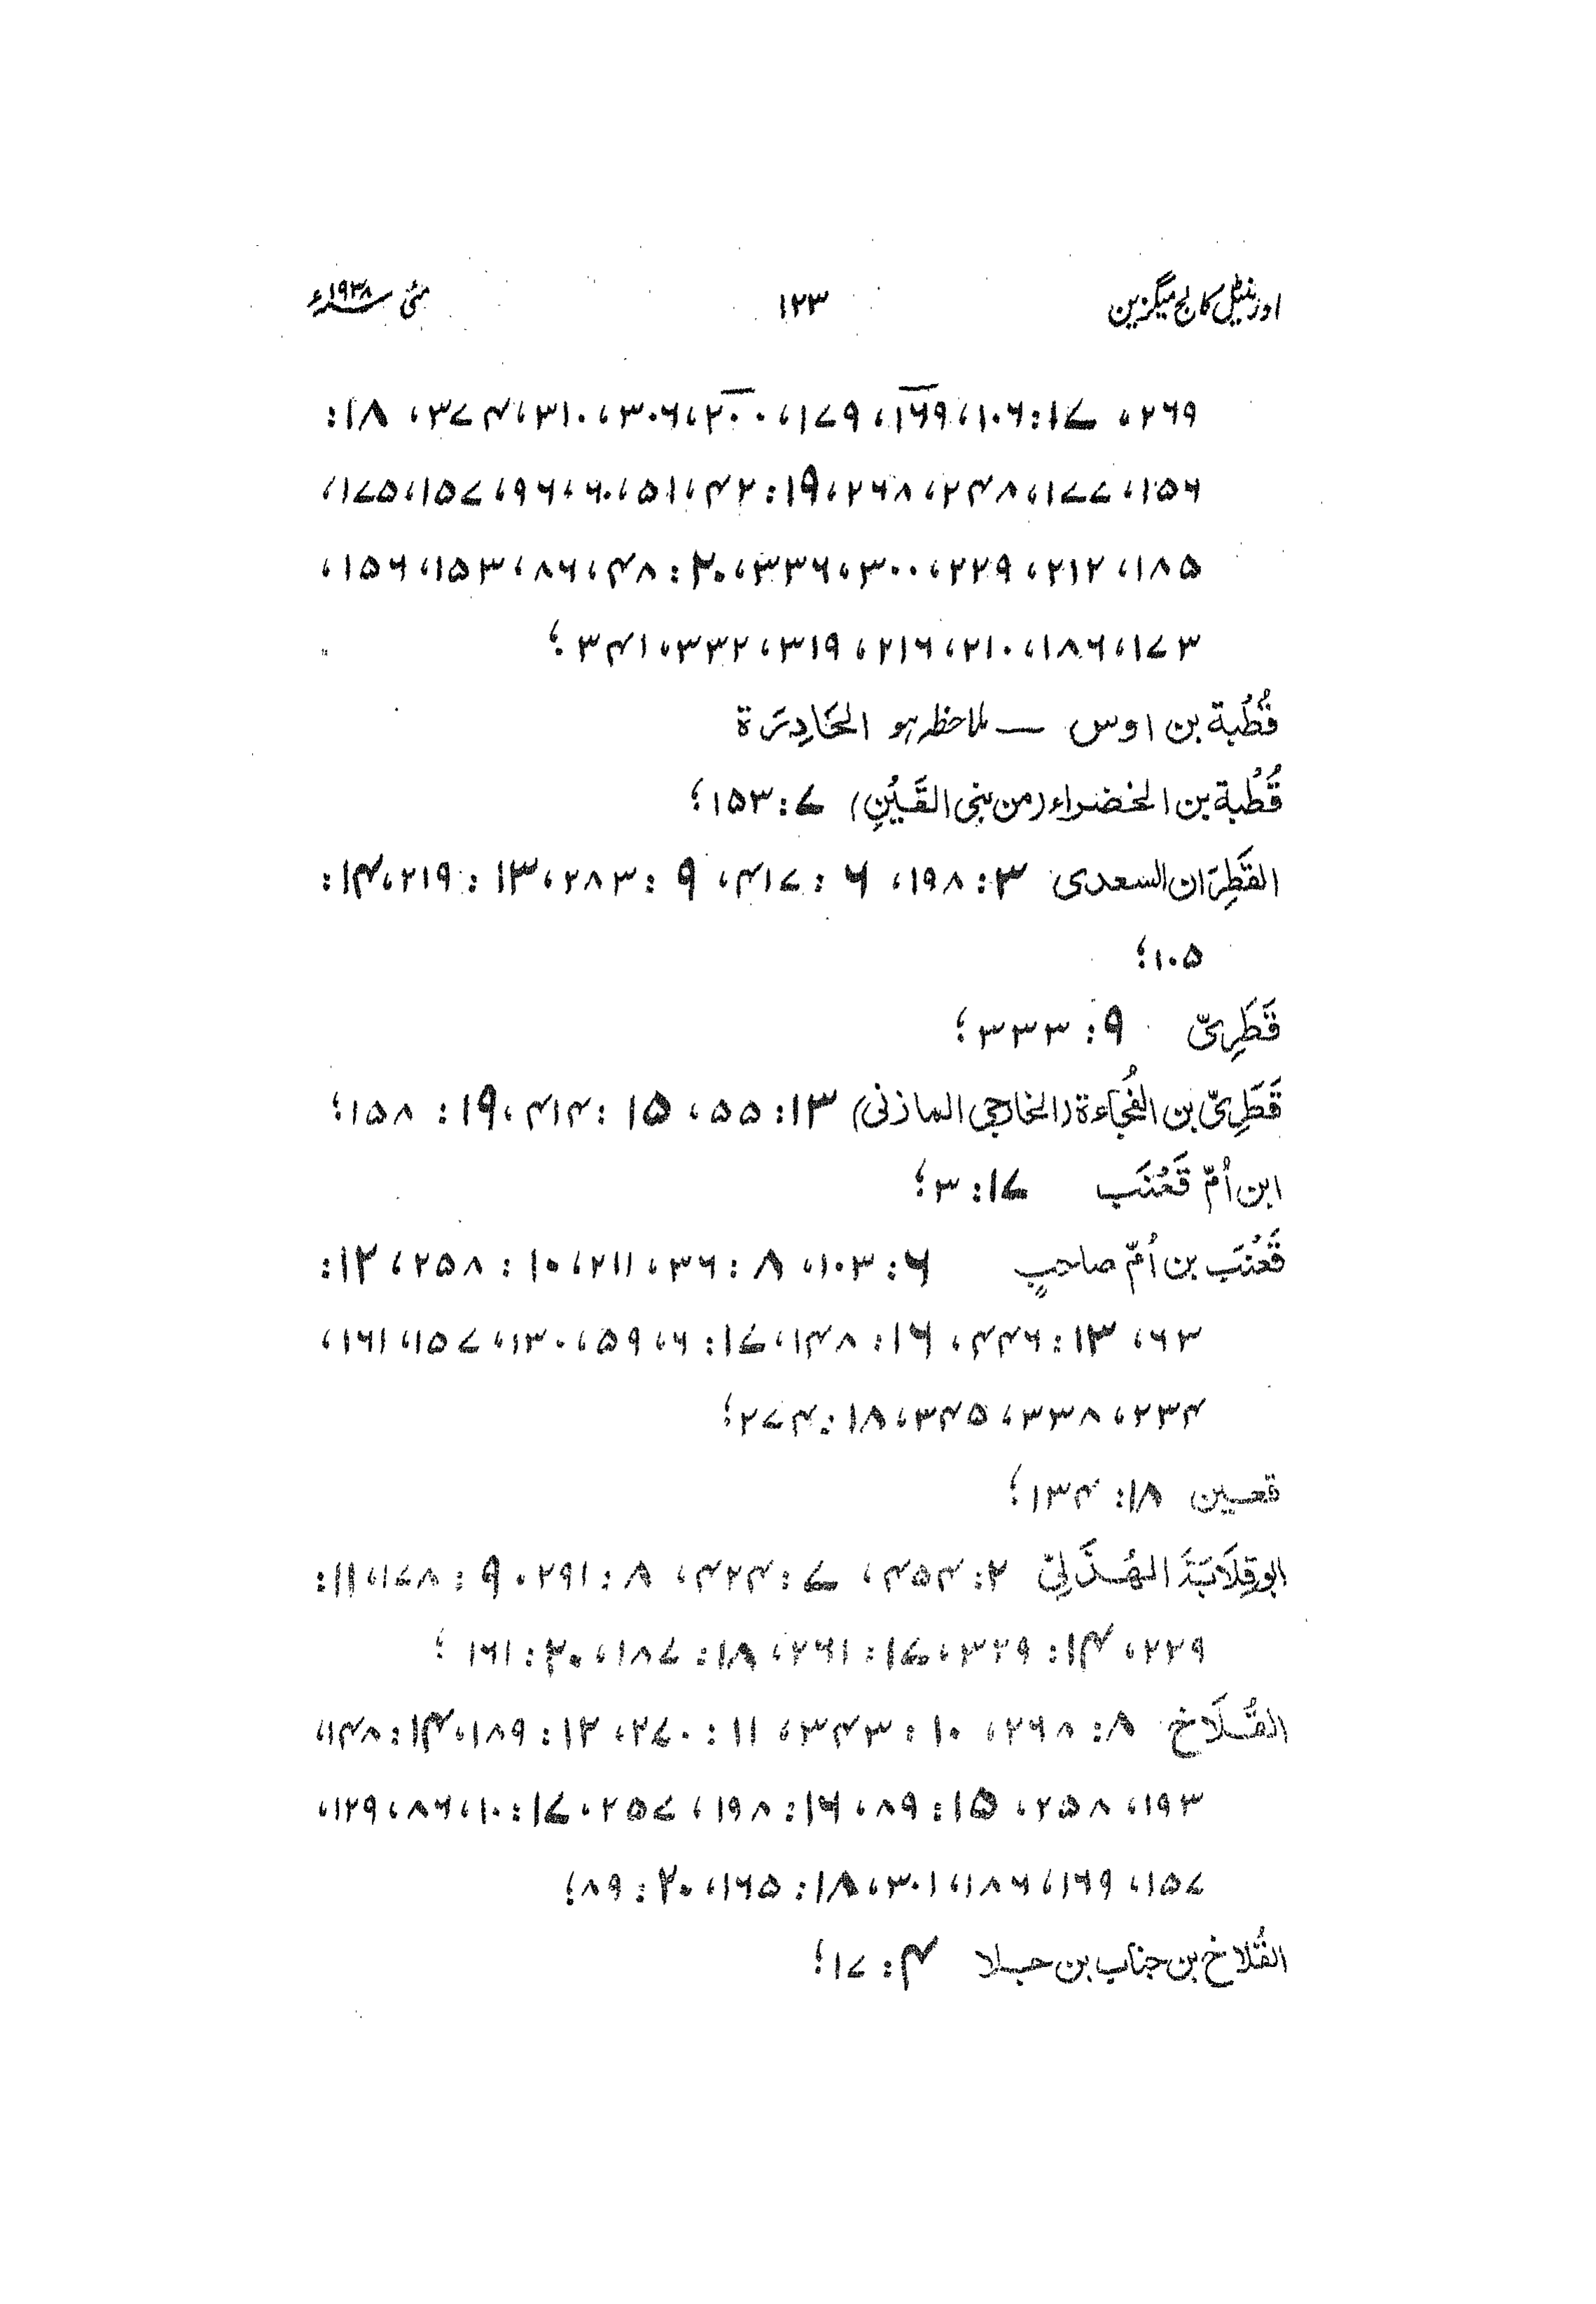 اورینٹل کالج میگزین ۱۲۳ مئی ۱۹۳۸ء
۲۶۹، ۱۷: ۱۰۶، ۱۶۹، ۱۷۹، ۲۰۰، ۳۰۶، ۳۱۰، ۳۷۴، ۱۸:
۱۵۶، ۱۷۷، ۲۴۸، ۲۶۸، ۱۹: ۴۲، ۵۱، ۶۰، ۹۶، ۱۵۷، ۱۷۵،
۱۸۵، ۲۱۲، ۲۲۹، ۳۰۰، ۳۳۶، ۲۰: ۴۸، ۸۶، ۱۵۳، ۱۵۶،
۱۷۳، ۱۸۶، ۲۱۰، ۲۱۶، ۳۱۹، ۳۳۲، ۳۴۱؛
قُطْبة بن اوس — ملاحظہ ہو الحَادِرَة
قُطْبة بن الخضراء (من بنی القَیْنِ) ۷: ۱۵۳؛
القَطِرَان السعدی ۳: ۱۹۸، ۶: ۴۱۷، ۹: ۲۸۳، ۱۳: ۲۱۹، ۱۴:
۱۰۵؛
قَطَرِیّ ۹: ۳۳۳؛
قَطَرِیّ بن الفُجَاءة (الخارجی المازنی) ۱۳: ۵۵، ۱۵: ۴۱۴، ۱۹: ۱۵۸؛
ابن اُمّ قَعْنَب ۱۷: ۳؛
قَعْنَب بن اُمّ صاحبٍ ۶: ۱۰۳، ۸: ۳۶، ۲۱۱، ۱۰: ۲۵۸، ۱۲:
۶۳، ۱۳: ۴۴۶، ۱۶: ۱۴۸، ۱۷: ۶، ۵۹، ۱۳۰، ۱۵۷، ۱۶۱،
۲۳۴، ۳۳۸، ۳۴۵، ۱۸: ۲۷۴؛
قعسین ۱۸: ۱۳۴؛
ابو قِلَابَة الهُذَلِیّ ۲: ۴۵۴، ۷: ۴۲۴، ۸: ۲۹۱، ۹: ۱۷۸، ۱۱:
۲۲۹، ۱۴: ۳۲۹، ۱۷: ۲۶۱، ۱۸: ۱۸۷، ۲۰: ۱۶۱؛
القُلَاخ ۸: ۲۶۸، ۱۰: ۳۴۳، ۱۱: ۲۷۰، ۱۲: ۱۸۹، ۱۴: ۱۴۸،
۱۹۳، ۲۵۸، ۱۵: ۸۹، ۱۶: ۱۹۸، ۲۵۷، ۱۷: ۱۰، ۸۶، ۱۲۹،
۱۵۷، ۱۶۹، ۱۸۶، ۳۰۱، ۱۸: ۱۶۵، ۲۰: ۸۹؛
القُلاخ بن جناب بن جلا ۴: ۱۷؛